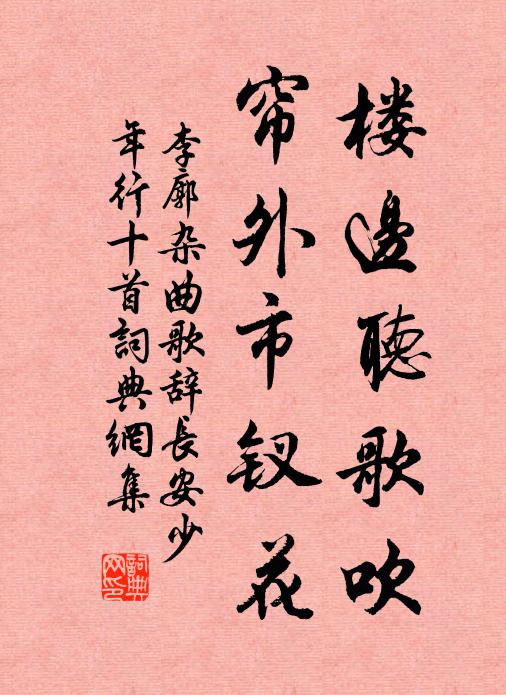 楼邊聽歌吹
帘外市钗花
李廓杂曲歌辞長安少
年行十首詞典網集
詞典
网印